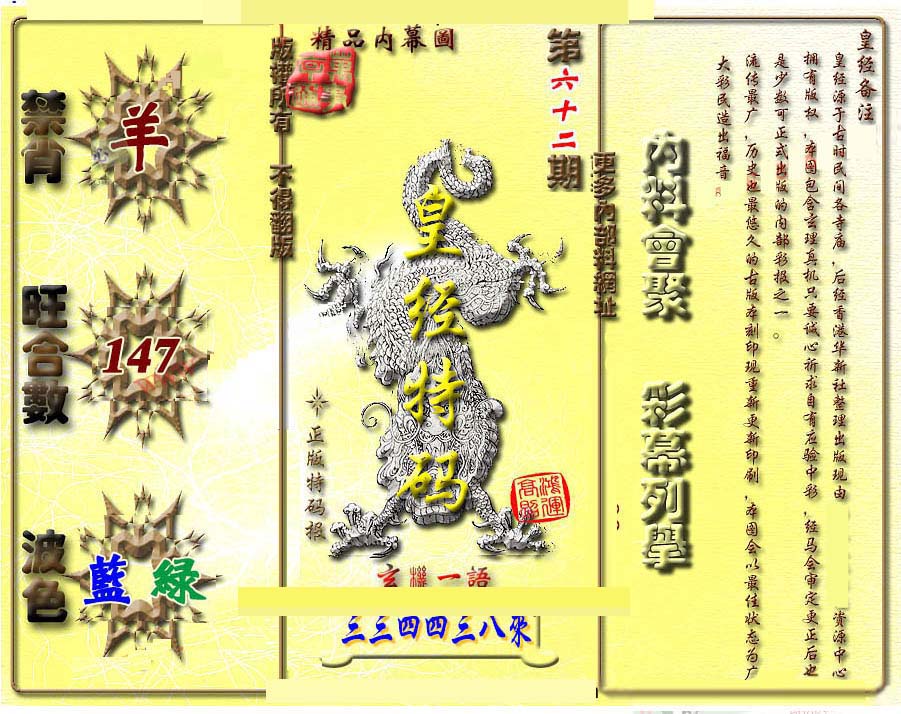 皇经备注
皇经源于古时民间各寺庙,后经香港华新社整理出版现由 资源中心
拥有版权,本图包含玄理真机只要诚心祈求自有应验中彩,经马会审定更正后也
是少数可正式出版的内部彩报之一。
流传最广,历史也最悠久的古版本刻印现重新更新印刷,本图会以最佳状态为广
大彩民造出福音
內料會聚 彩幕列舉
更多內部料網址
第六十二期
精品内幕圖
皇经特码
正版特码报
鴻運高照
版權所有 不得翻版
玄機一語
三三四四三八來
禁肖
羊
旺合數
147
波色
藍 綠